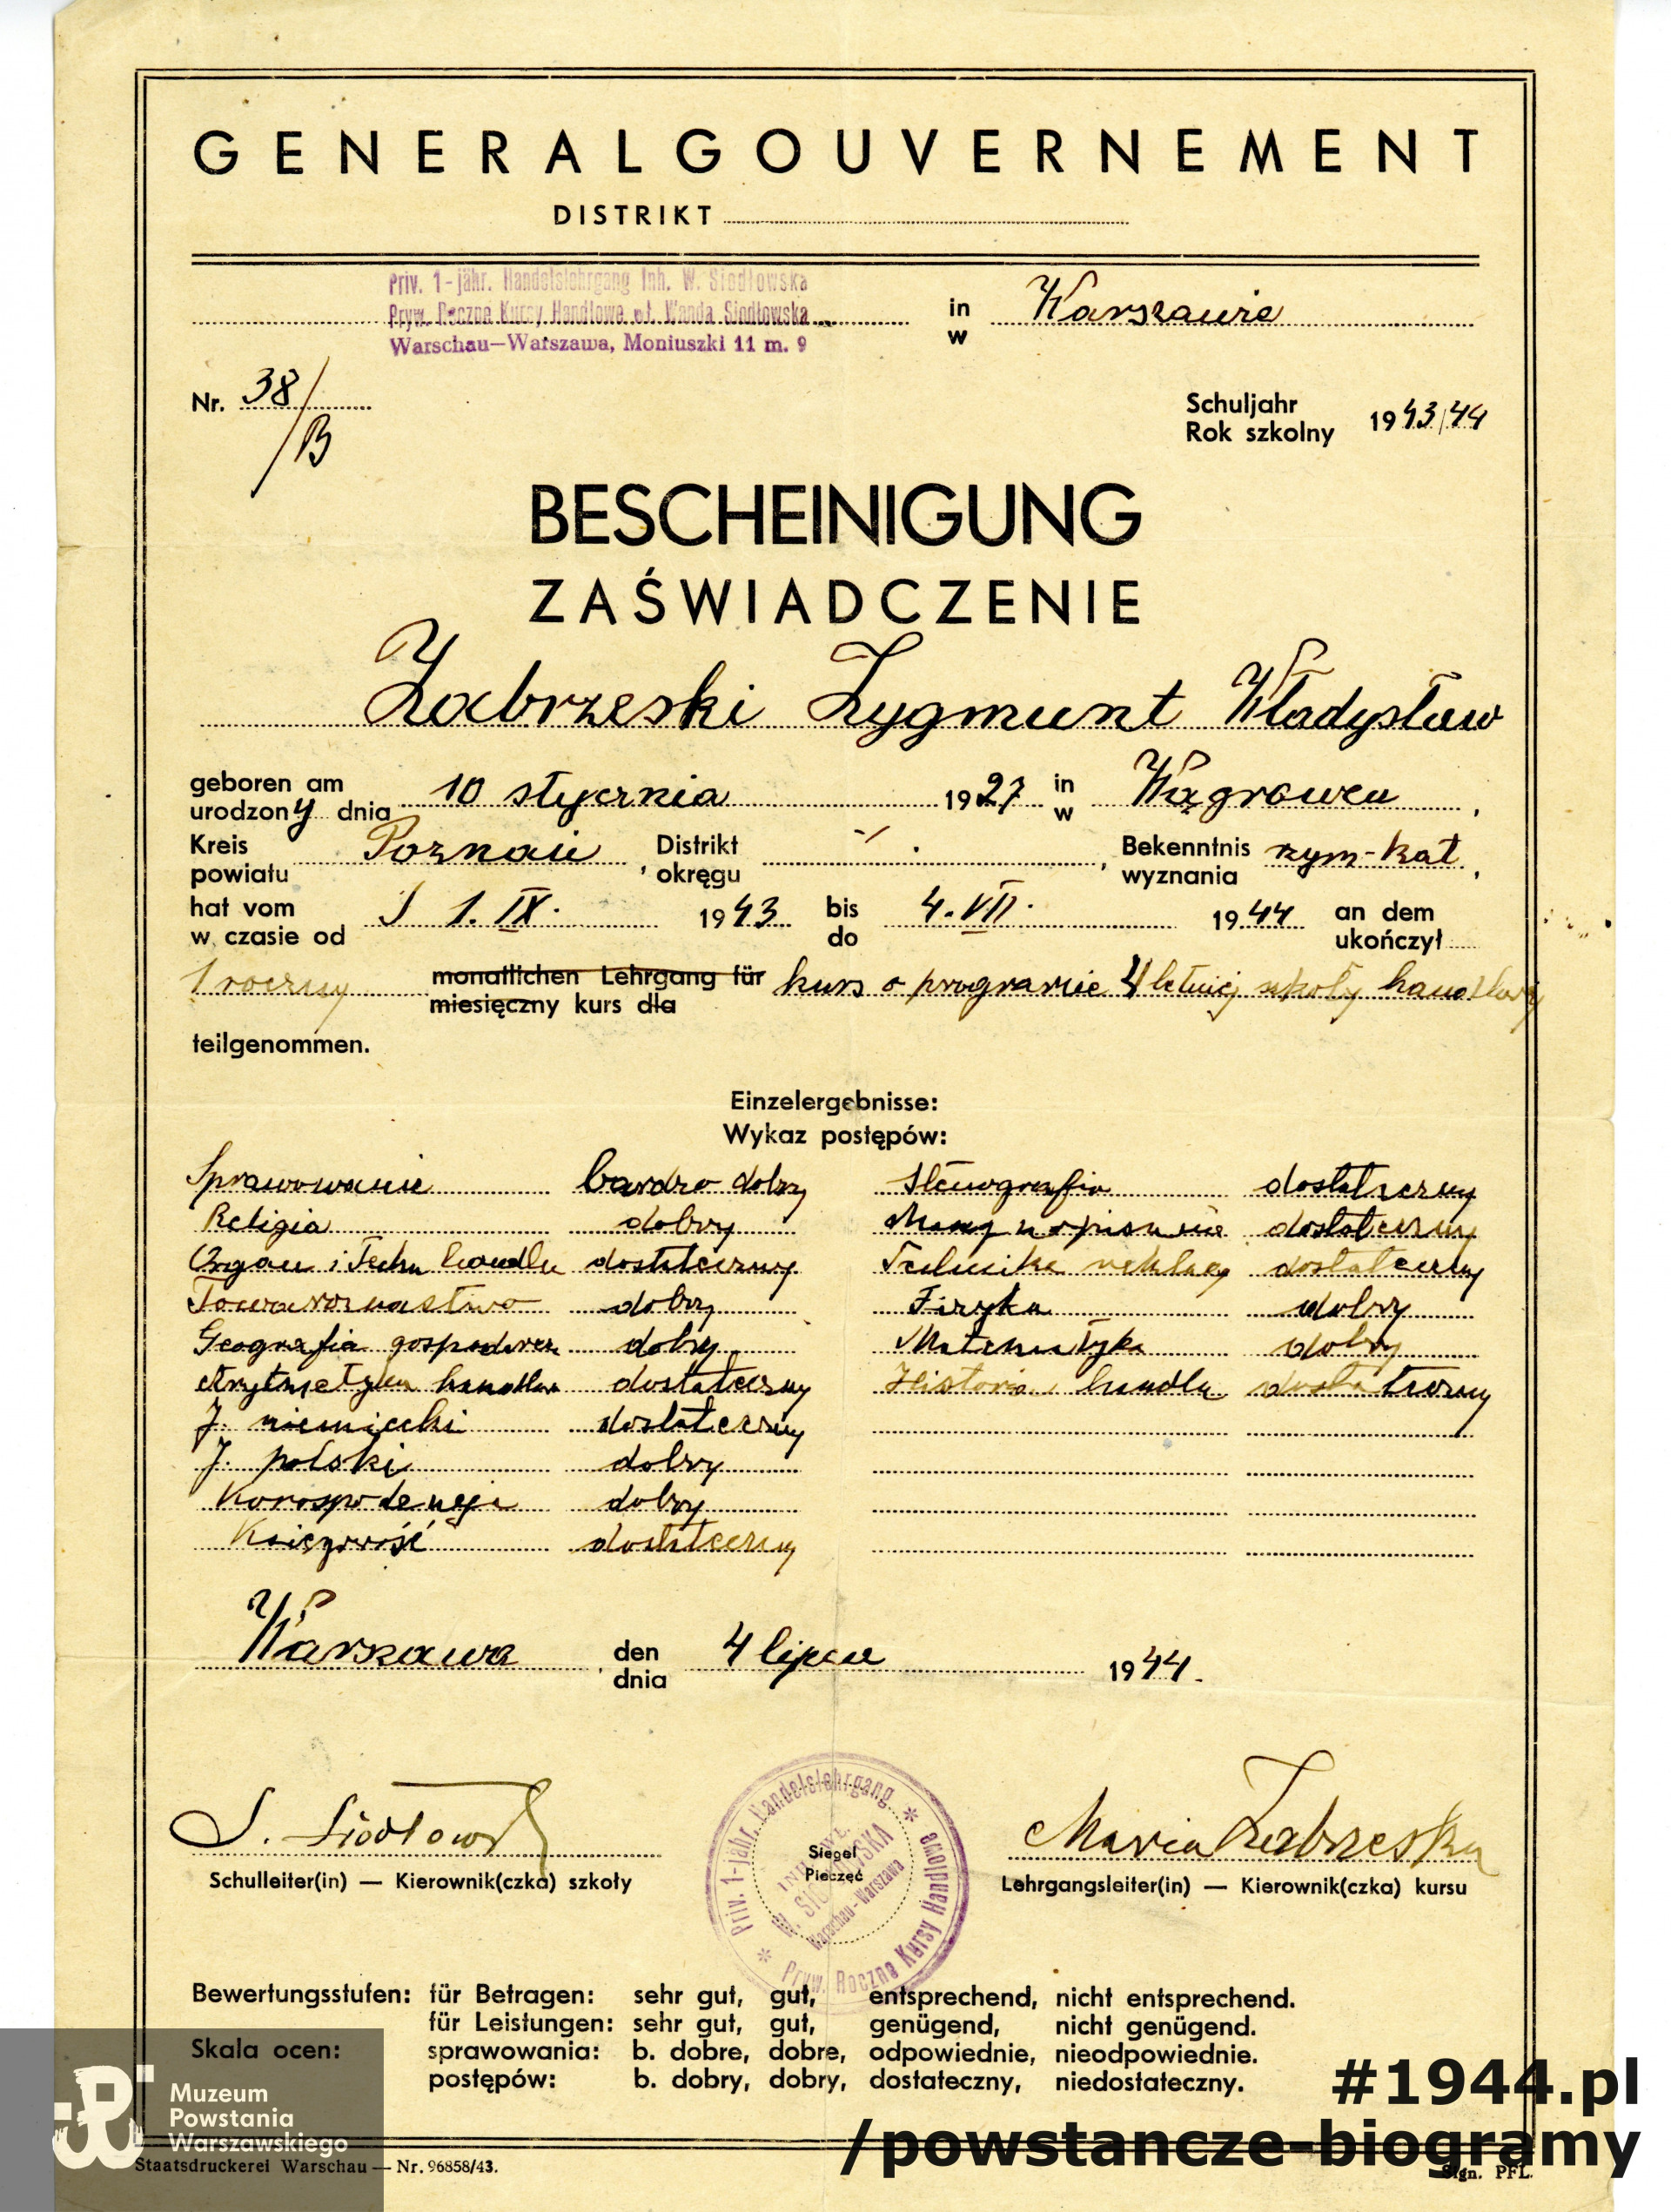 GENERALGOUVERNEMENT
DISTRIKT
Priv. 1-jähr. Handelslehrgang Inh. W. Siodłowska
Pryw. Roczne Kursy Handlowe wł. Wanda Siodłowska
Warschau—Warszawa, Moniuszki 11 m. 9
in Warszawie
w
Nr. 38/B
Schuljahr
Rok szkolny 1943/44
BESCHEINIGUNG
ZAŚWIADCZENIE
Zabrzeski Zygmunt Władysław
geboren am
urodzony dnia 10 stycznia 1927 in w Wągrowcu,
Kreis
powiatu Poznań, Distrikt okręgu -/., Bekenntnis wyznania rzym-kat,
hat vom
w czasie od 1. IX. 1943 bis do 4. VII. 1944 an dem ukończył
1 roczny monatlichen Lehrgang für kurs o programie 4 letniej szkoły handlowej
miesięczny kurs dla
teilgenommen.
Einzelergebnisse:
Wykaz postępów:
Sprawowanie bardzo dobry Stenografia dostateczny
Religia dobry Maszynopisanie dostateczny
Organ i Techn handlu dostateczny Technika reklamy dostateczny
Towaroznastwo dobry Fizyka dobry
Geografia gospodarcz dobry Matematyka dobry
Arytmetyka handlow dostateczny Historia handlu dostateczny
J. niemiecki dostateczny
J. polski dobry
Korespodencja dobry
Księgowość dostateczny
Warszawa, den dnia 4 lipca 1944.
S. Siodłowsk Maria Zabrzeska
Schulleiter(in) — Kierownik(czka) szkoły
Siegel
Pieczęć
Priv. 1-jähr. Handelslehrgang * Pryw. Roczne Kursy Handlowe *
W. SIODŁOWSKA
Warschau-Warszawa
Lehrgangsleiter(in) — Kierownik(czka) kursu
Bewertungsstufen: für Betragen: sehr gut, gut, entsprechend, nicht entsprechend.
für Leistungen: sehr gut, gut, genügend, nicht genügend.
Skala ocen: sprawowania: b. dobre, dobre, odpowiednie, nieodpowiednie.
postępów: b. dobry, dobry, dostateczny, niedostateczny.
Muzeum
Powstania
Warszawskiego
#1944.pl
/powstancze-biogramy
Staatsdruckerei Warschau — Nr. 96858/43.
Sign. PFL.